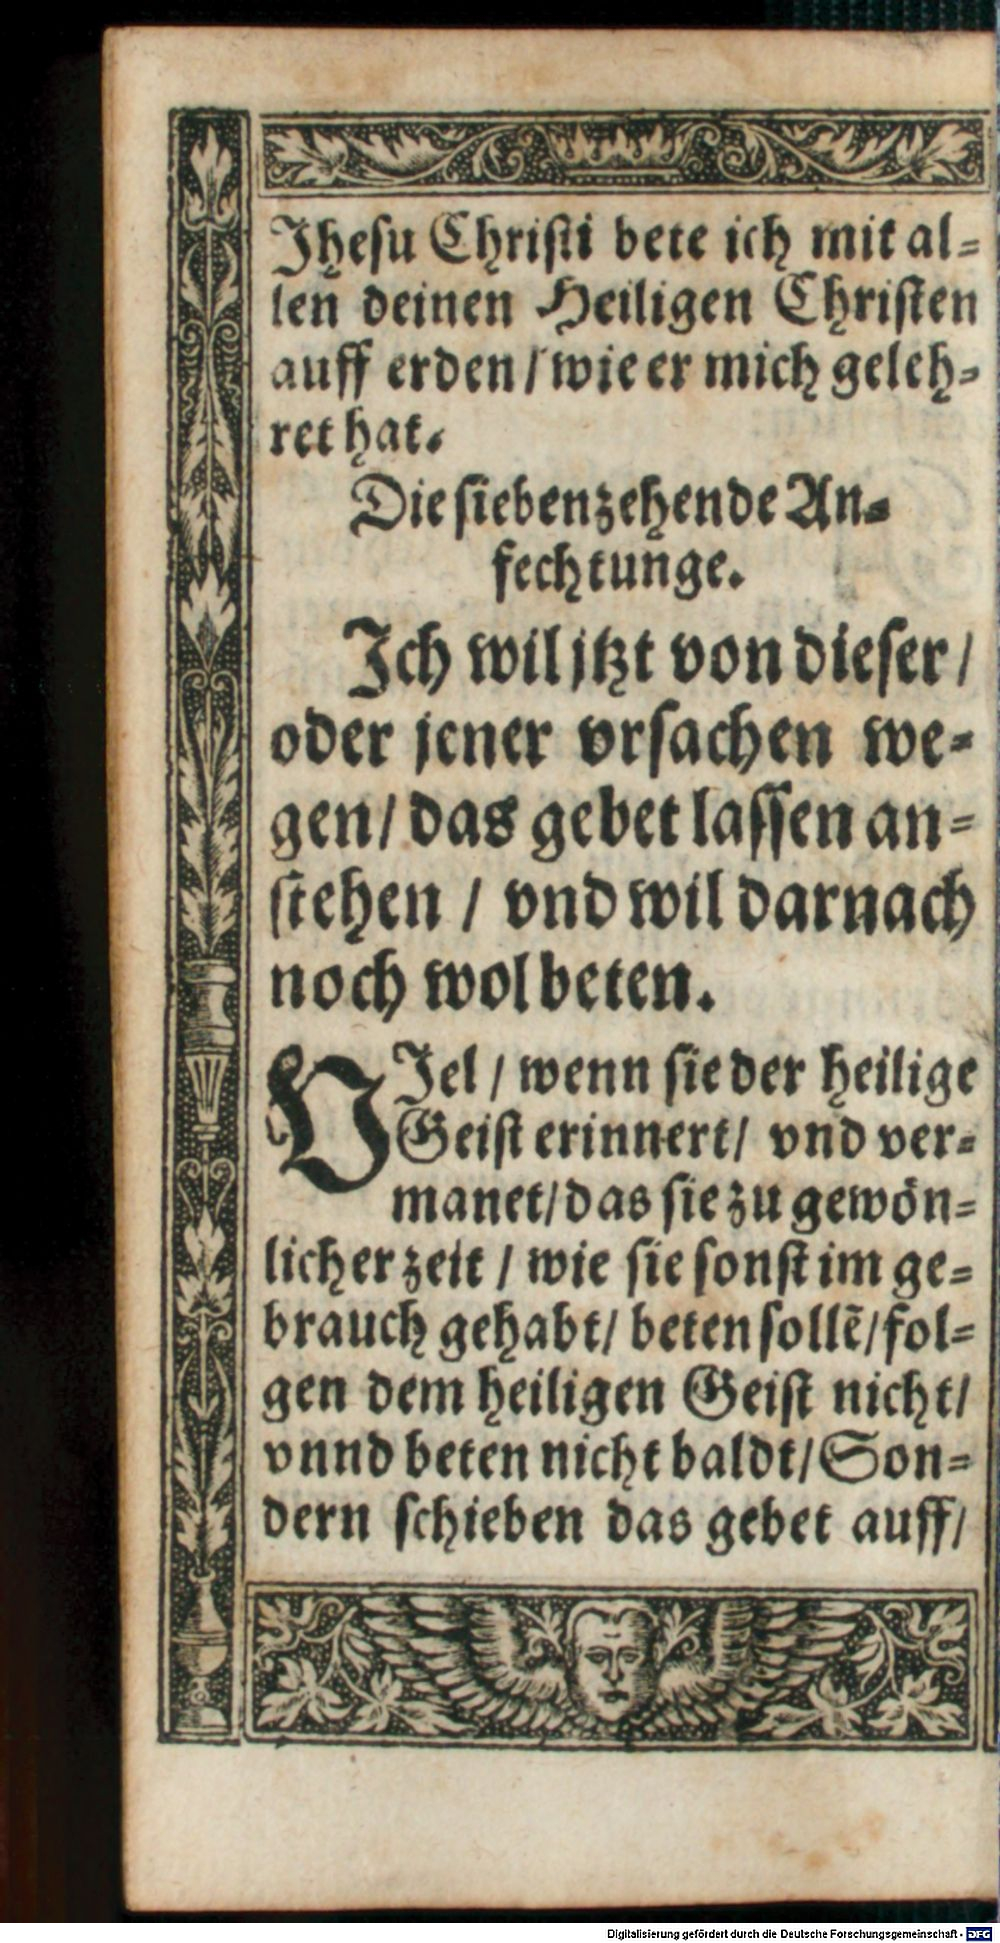 Jhesu Christi bete ich mit al=
len deinen Heiligen Christen
auff erden / wie er mich geleh=
ret hat.
Die siebenzehende An=
fechtunge.
Jch wil jtzt von dieser /
oder jener vrsachen we=
gen / das gebet lassen an=
stehen / vnd wil darnach
noch wol beten.
VJel / wenn sie der heilige
Geist erinnert / vnd ver=
manet / das sie zu gewön=
licher zeit / wie sie sonst im ge=
brauch gehabt / beten sollẽ / fol=
gen dem heiligen Geist nicht /
vnnd beten nicht baldt / Son=
dern schieben das gebet auff /
Digitalisierung gefördert durch die Deutsche Forschungsgemeinschaft - DFG